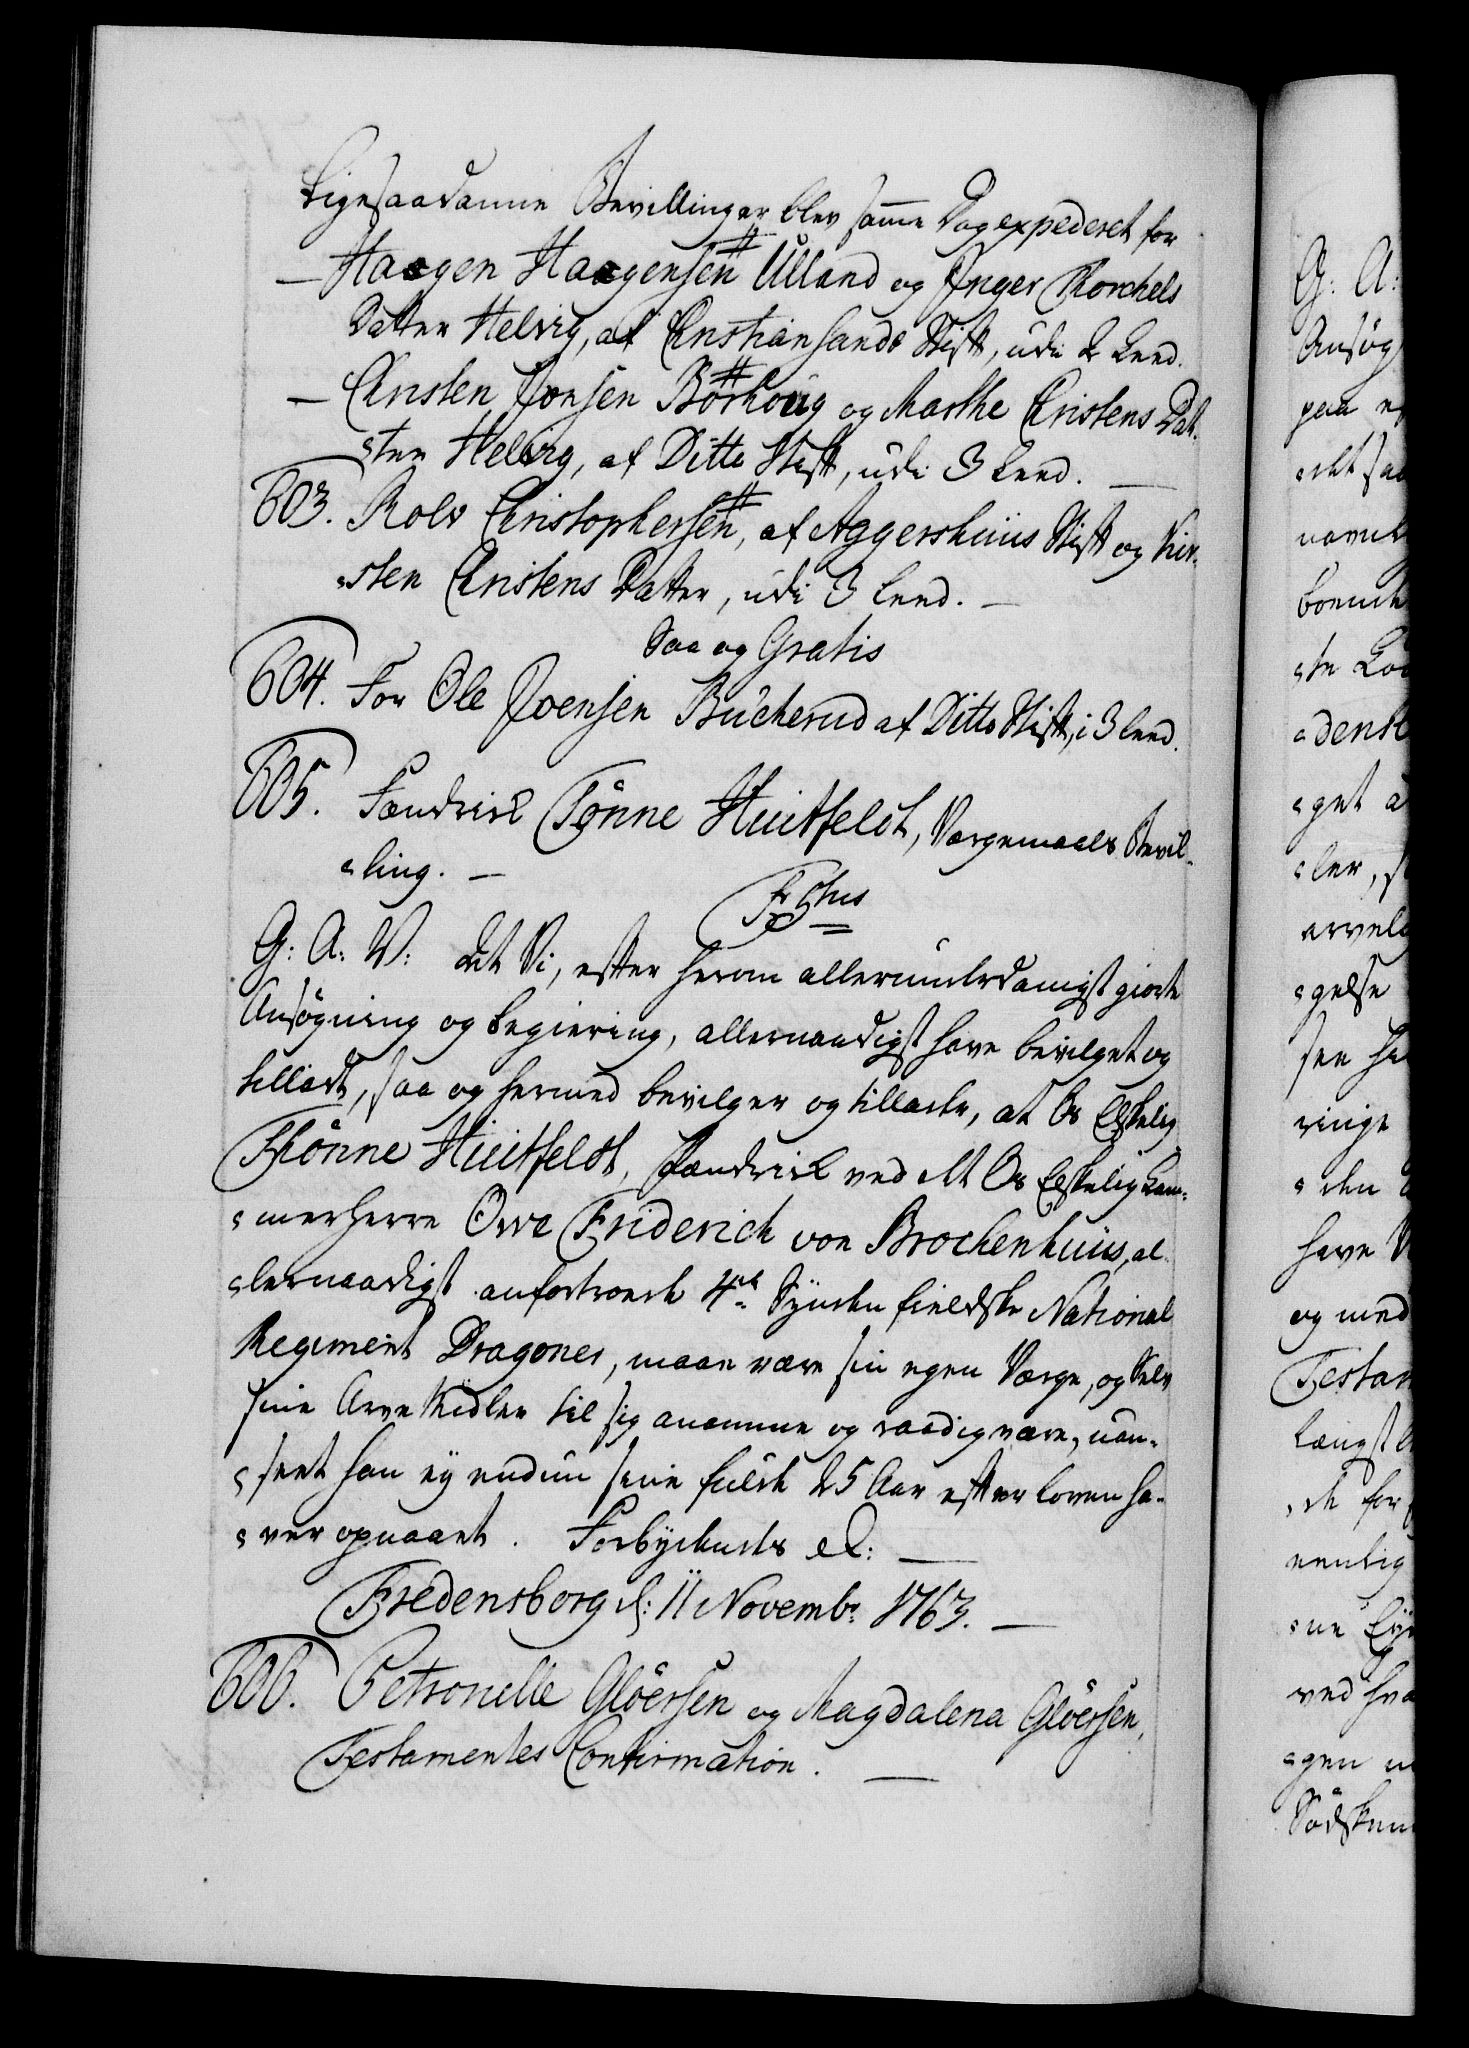 Ligesaadanne Bevillinger blev samme Dag expederet for
— Haagen Haagensen Ulland og Inger Thorchels
Datter Helvig, af Christiansands Stift, udi 2 Leed.
— Christen Jonsen Börhoug og Marthe Christens Dat-
ter Helvig, af Ditto Stift, udi 3 Leed. —
603. Rolv Christophersen, af Aggershuus Stift og Kir-
sten Christens Datter, udi 3 Leed. —
Saa og Gratis
604. For Ole Joensen Bücherud af Ditto Stift, i 3 Leed.
605. Fændrik Tönne Huitfeldt, Værgemaals Bevil-
ling. —
F 5tus
G: A: V: At Vi, efter herom allerunderdanigst giorte
Ansögning og Begiering, allernaadigst have bevilget og
tilladt, saa og hermed bevilger og tillade, at Os Elskelig
Thönne Huitfeldt, Fændrik ved det Os Elskelig Kam-
merherre Ove Friderich von Brochenhuus, al-
lernaadigst anfortroede 4de Synden fieldske National
Regiment Dragoner, maae være sin egen Værge, og Selv
sine Arve Midler til sig anamme og raadig være, uan-
seet han ey endnu sine fulde 25 Aar efter Loven ha-
ver opnaaet. Forbydendes etc: —
Fredensborg d: 11 Novembr. 1763. —
606. Petronelle Glöersen og Magdalena Glöersen,
Testamentes Confirmation. —
G: A:
Ansög
paa
det saa
boende
dense
get
ler,
gelse
ringe
den
have
og med
Testam
længst
de for
eenlig
ved hva
gen
Södsken